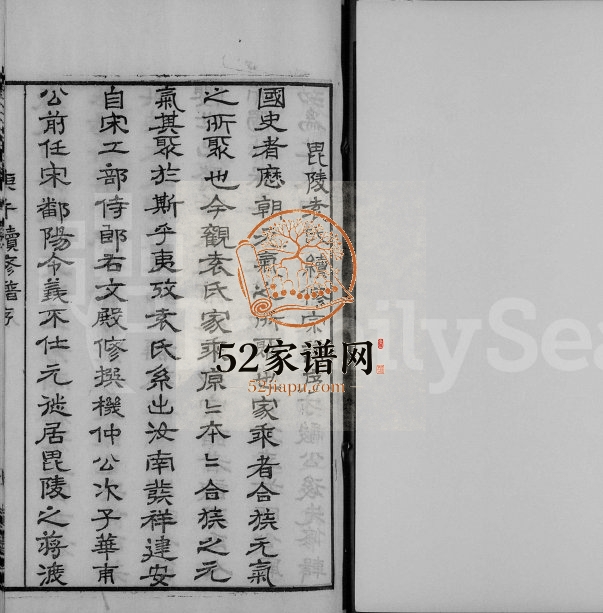 毘陵袁氏續修宗
國史者歷朝元氣之所聚家乘者合族元氣
之所聚也今觀袁氏家乘原〻本〻合族之元
氣其聚於斯乎夷攷袁氏系出汝南發祥建安
自宋工部侍郎右文殿修撰機仲公次子華甫
公前任宋鄱陽令義不仕元徙居毘陵之蔣渡
庚午續修譜序
52家谱网
52jiapu.com
ilySea